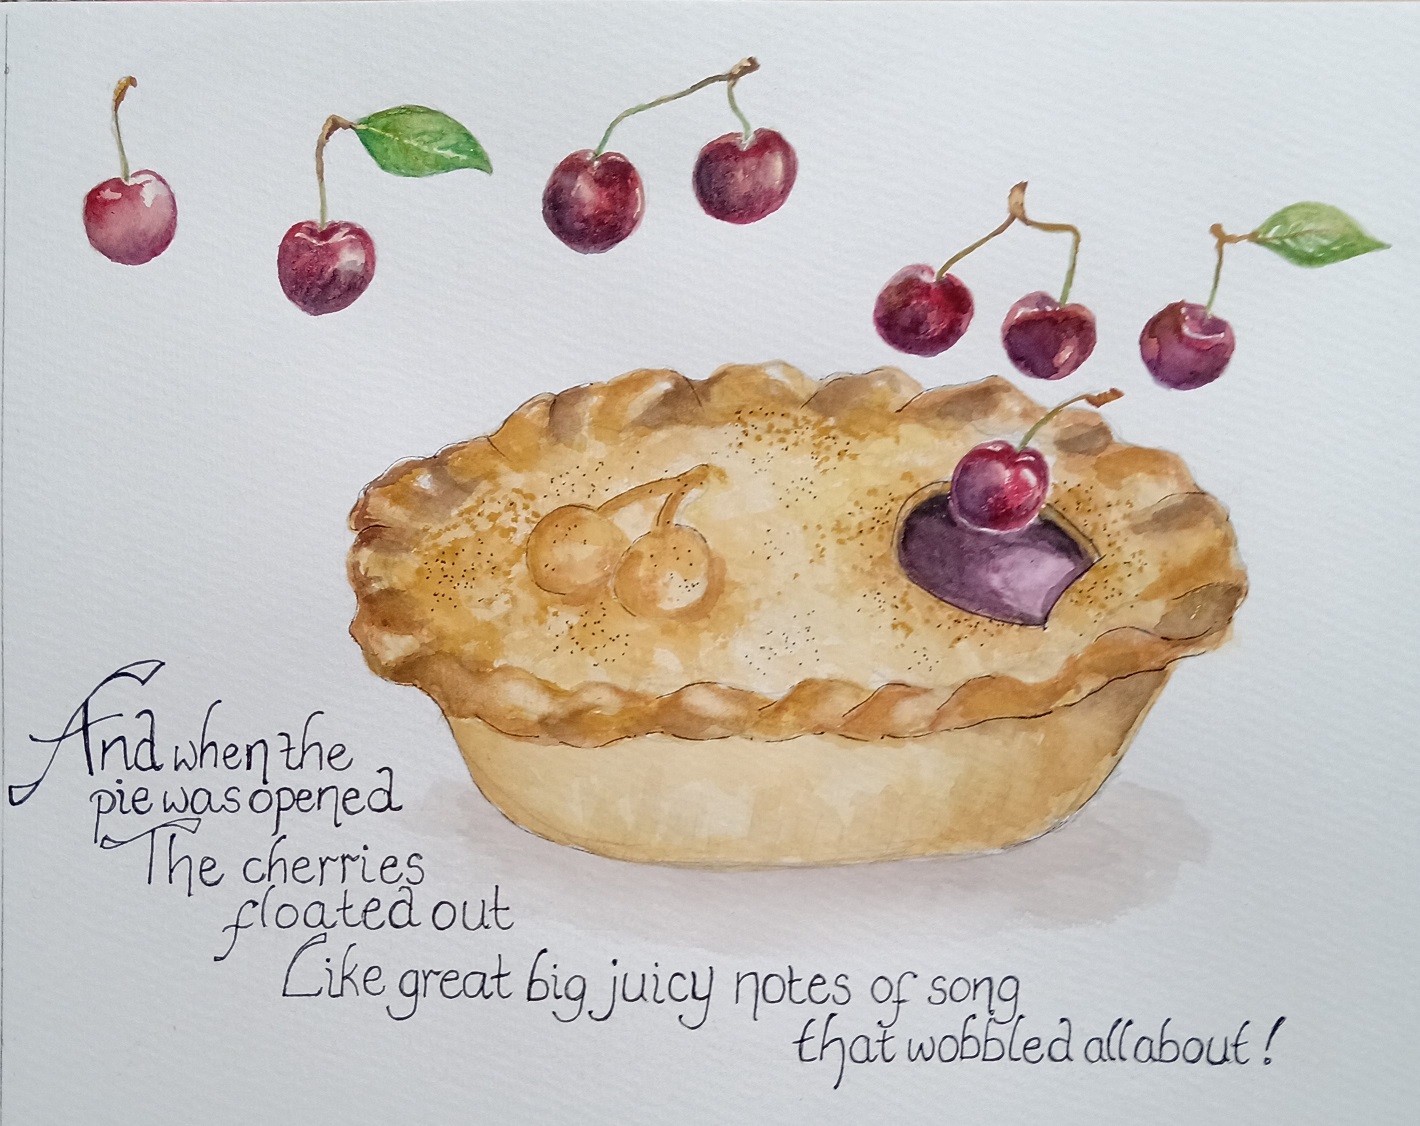 And when the
pie was opened
The cherries
floated out
Like great big juicy notes of song
that wobbled all about!